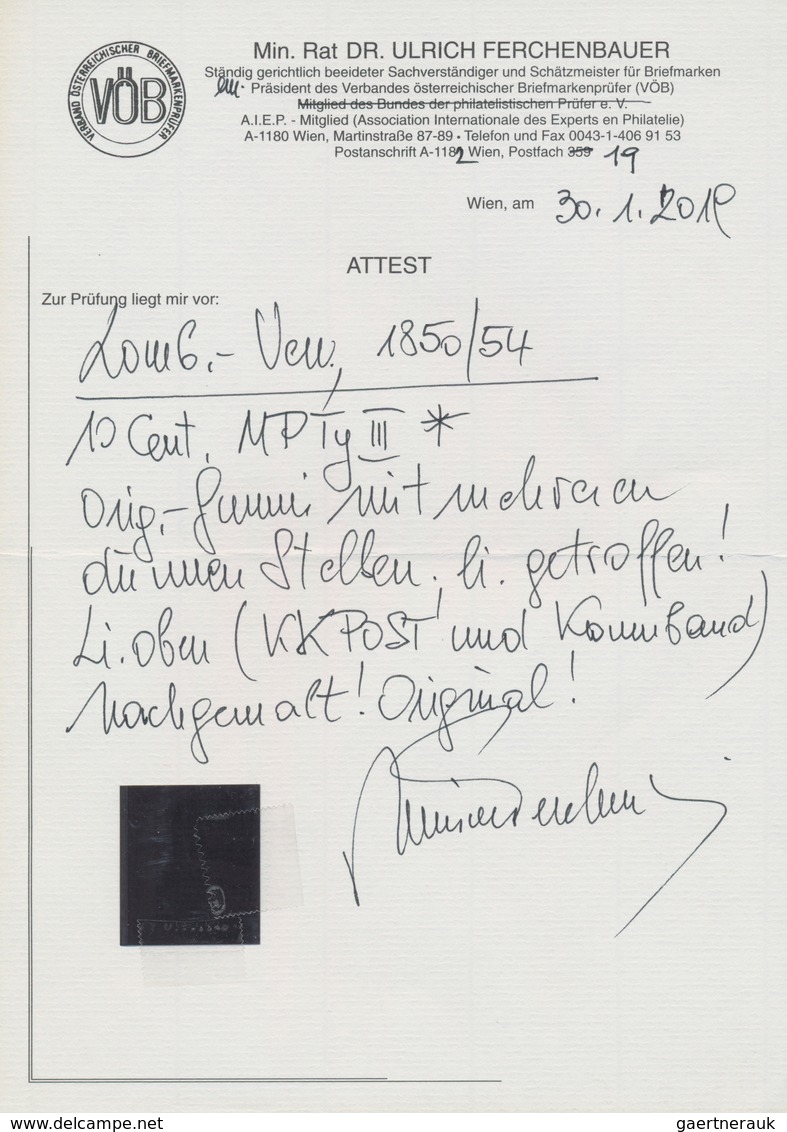 VERBAND ÖSTERREICHISCHER BRIEFMARKENPRÜFER
VÖB
Min. Rat DR. ULRICH FERCHENBAUER
Ständig gerichtlich beeideter Sachverständiger und Schätzmeister für Briefmarken
em. Präsident des Verbandes österreichischer Briefmarkenprüfer (VÖB)
Mitglied des Bundes der philatelistischen Prüfer e. V.
A.I.E.P. - Mitglied (Association Internationale des Experts en Philatelie)
A-1180 Wien, Martinstraße 87-89 • Telefon und Fax 0043-1-406 91 53
Postanschrift A-1182 Wien, Postfach 359 19
Wien, am 30. 1. 201
ATTEST
Zur Prüfung liegt mir vor:
Lomb.- Ven, 1850/54
10 Cent, MP Ty III *
Orig.-Gummi mit mehreren
dünnen Stellen. li. getroffen!
Li. oben (KK POST und Kronenband)
Nachgemalt! Original!
www.delcampe.net
gaertnerauk